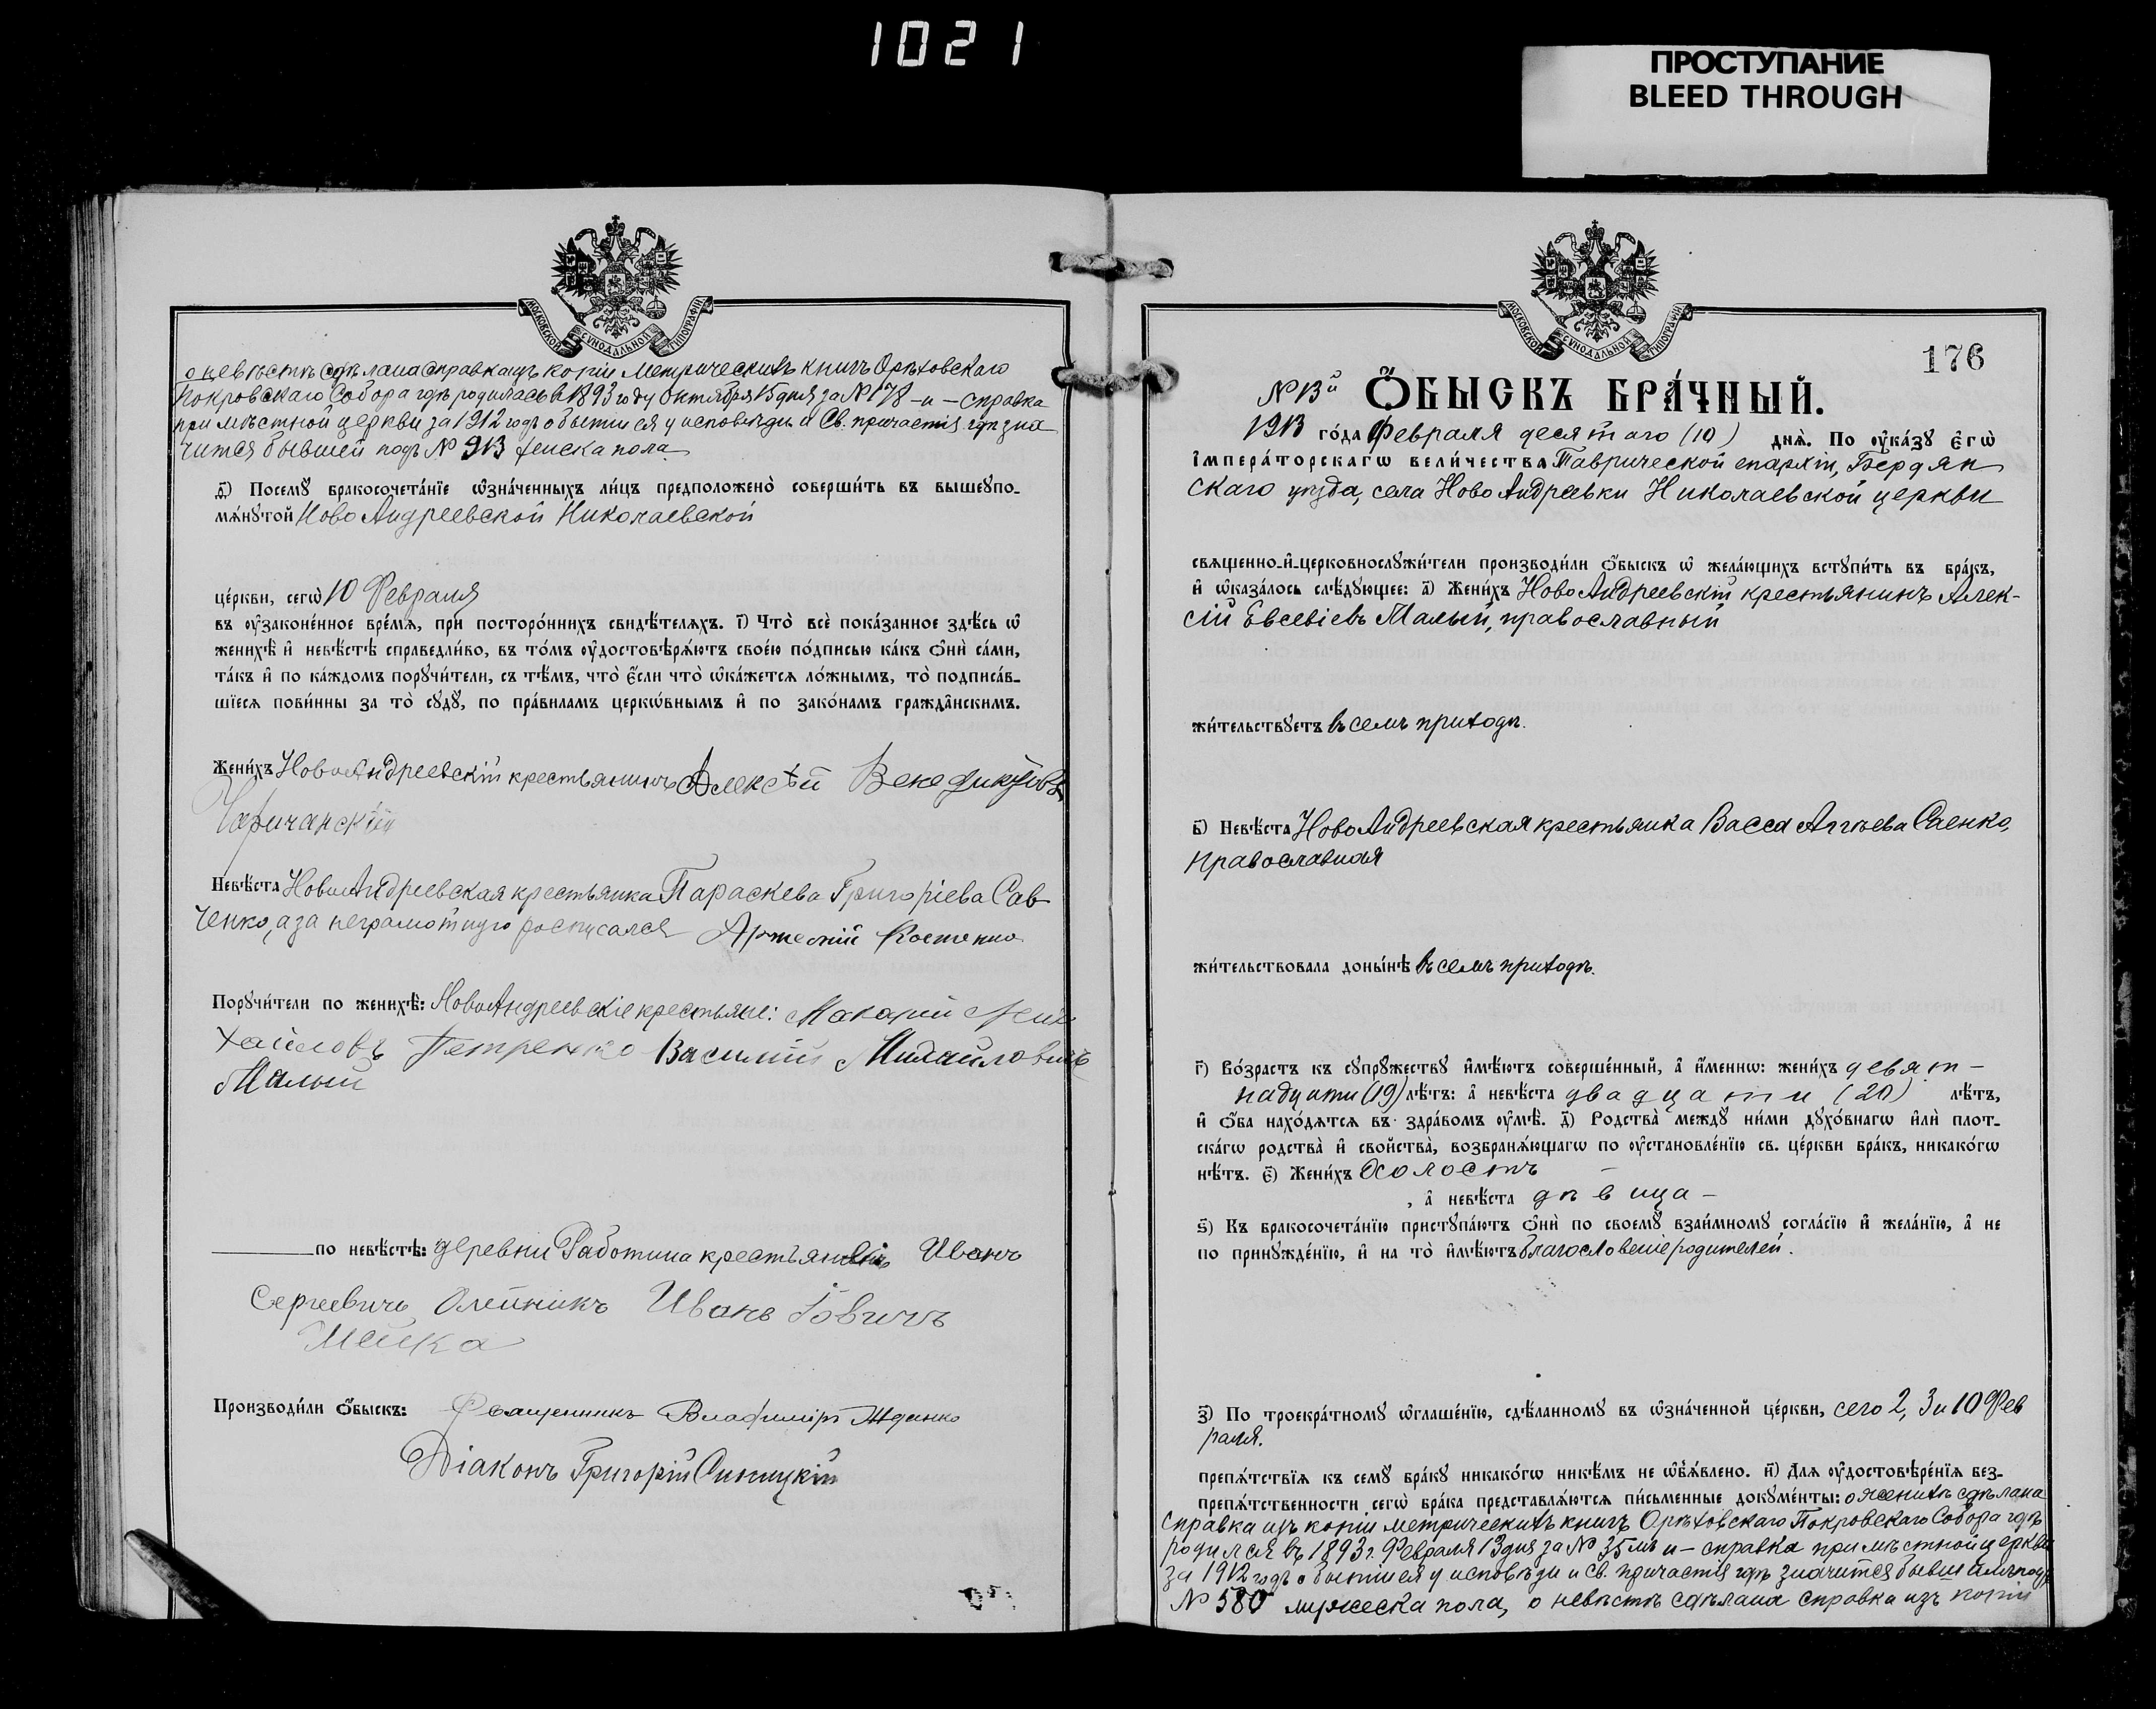 1021
ПРОСТУПАНИЕ
BLEED THROUGH
МОСКОВСКОЙ СѴНОДАЛЬНОЙ ТИПОГРАФІИ
о невѣстѣ сдѣлана справка изъ копіи метрическихъ книгъ Орѣховскаго
Покровскаго Собора гдѣ родилась въ 1893 году Октября 15 дня за № 178 - и - справка
при мѣстной церкви за 1912 годъ о бытіи ея у исповѣди и Св. причастія гдѣ зна
чится бывшей подъ № 913 женска пола
д҃) Посемꙋ бракосочета́нїе ѡзна́ченныхъ ли́цъ предположено̀ соверши́ть въ вышеупо-
мѧ́нꙋтой Ново Андреевской Николаевской
це́ркви, сегѡ̀ 10 Февраля
въ ᲂу҆законе́нное вре́мѧ, при посторо́ннихъ свидѣ́телѧхъ. і҃) Что̀ всѐ пока́занное здѣ́сь ѡ҆
женихѣ̀ и҆ невѣ́стѣ справедли́во, въ то́мъ ᲂу҆достовѣрѧ́ютъ свое́ю по́дписью ка́къ ѻ҆нѝ са́ми,
та́къ и҆ по ка́ждомъ порꙋчи́тели, съ тѣ́мъ, что̀ є҆́сли что̀ ѡ҆ка́жется ло́жнымъ, то̀ подписа́в-
шїесѧ пови́нны за то̀ сꙋдꙋ̀, по пра́виламъ церко́внымъ и҆ по зако́намъ гражда̂нскимъ.
Жени́хъ НовоАндреевскій крестьянинъ Алексѣй Венедиктовъ
Чаричанскій
Невѣ́ста НовоАндреевская крестьянка Параскева Григоріева Сав
ченко, а за неграмотную росписался Артемій Костенко
Порꙋчи́тели по женихѣ̀: НовоАндреевскіе крестьяне: Макарий Мих
хайловъ Петренко Василий Михайловичъ
Малый
по невѣ́стѣ: деревни Работина крестьянинъ Иванъ
Сергеевичъ Олейникъ Иванъ Іовичъ
Мейка
Производи́ли ѻ҆́быскъ: Священникъ Владиміръ Жданко
Діаконъ Григорій Синицкій
МОСКОВСКОЙ СѴНОДАЛЬНОЙ ТИПОГРАФІИ
176
№ 13й Ѻ҆́БЫСКЪ БРА́ЧНЫЙ.
1913 го́да Февраля десятаго (10) днѧ̀. По ᲂу҆ка́зꙋ є҆гѡ̀
і҆мпера́торскагѡ вели́чества Таврической епархіи, Бердян
скаго уѣзда, села Ново Андреевки Николаевской церкви
свѧщенно-и҆-церковнослꙋжи́тели производи́ли ѻ҆́быскъ ѡ҆ жела́ющихъ вступи́ть въ бра́къ,
и҆ ѡ҆каза́лось слѣ́дꙋющее: а҃) Жени́хъ Ново Андреевскій крестьянинъ Алек-
сій Евсевіевъ Малый, православный
жи́тельствꙋетъ въ семъ приходѣ.
в҃) Невѣ́ста Ново Андреевская крестьянка Васса Аггѣева Саенко,
православная
жи́тельствовала доны́нѣ въ семъ приходѣ.
г҃) Во́зрастъ къ сꙋпрꙋ́жествꙋ и҆мѣ́ютъ соверше́нный, а҆ и҆́меннѡ: жени́хъ девят-
надцати (19) лѣ́тъ: а҆ невѣ́ста двадцати (20) лѣ́тъ,
и҆ ѻ҆́ба нахо́дѧтсѧ въ здра́вомъ ᲂу҆мѣ̀. д҃) Родства̀ междꙋ ни́ми дꙋхо́внагѡ и҆лѝ плот-
ска́гѡ родства̀ и҆ сво́йства, возбранѧ́ющагѡ по ᲂу҆становле́нїю св. це́ркви бра́къ, никако́гѡ
нѣ́тъ. є҃) Жени́хъ Холостъ -
, а҆ невѣ́ста дѣвица -
ѕ҃) Къ бракосочета́нїю пристꙋпа́ютъ ѻ҆нѝ по своемꙋ̀ взаи́мномꙋ согла́сїю и҆ жела́нїю, а҆ не
по принꙋжде́нїю, и҆ на то̀ и҆мѣ́ютъ благословеніе родителей.
з҃) По троекра́тномꙋ ѡ҆глаше́нїю, сдѣ́ланномꙋ въ ѡ҆зна́ченной це́ркви, сего 2, 3 и 10 Фев
раля.
препѧ́тствїѧ къ семꙋ̀ бра́кꙋ никако́гѡ никѣ́мъ не ѡ҆б̾ѧ́влено. и҃) Длѧ ᲂу҆достовѣре́нїѧ без-
препѧ́тственности сегѡ̀ бра́ка представлѧ́ютсѧ пи́сьменные докꙋме́нты: о женихѣ сдѣлана
справка изъ копіи метрическихъ книгъ Орѣховскаго Покровскаго Собора гдѣ
родился въ 1893 г. Февраля 13 дня за № 35мъ и - справка при мѣстной церкви
за 1912 годъ о бытіи ея у исповѣди и св. причастія гдѣ значится бывшимъ подъ
№ 580 мужеска пола, о невѣстѣ сдѣлана справка изъ копіи